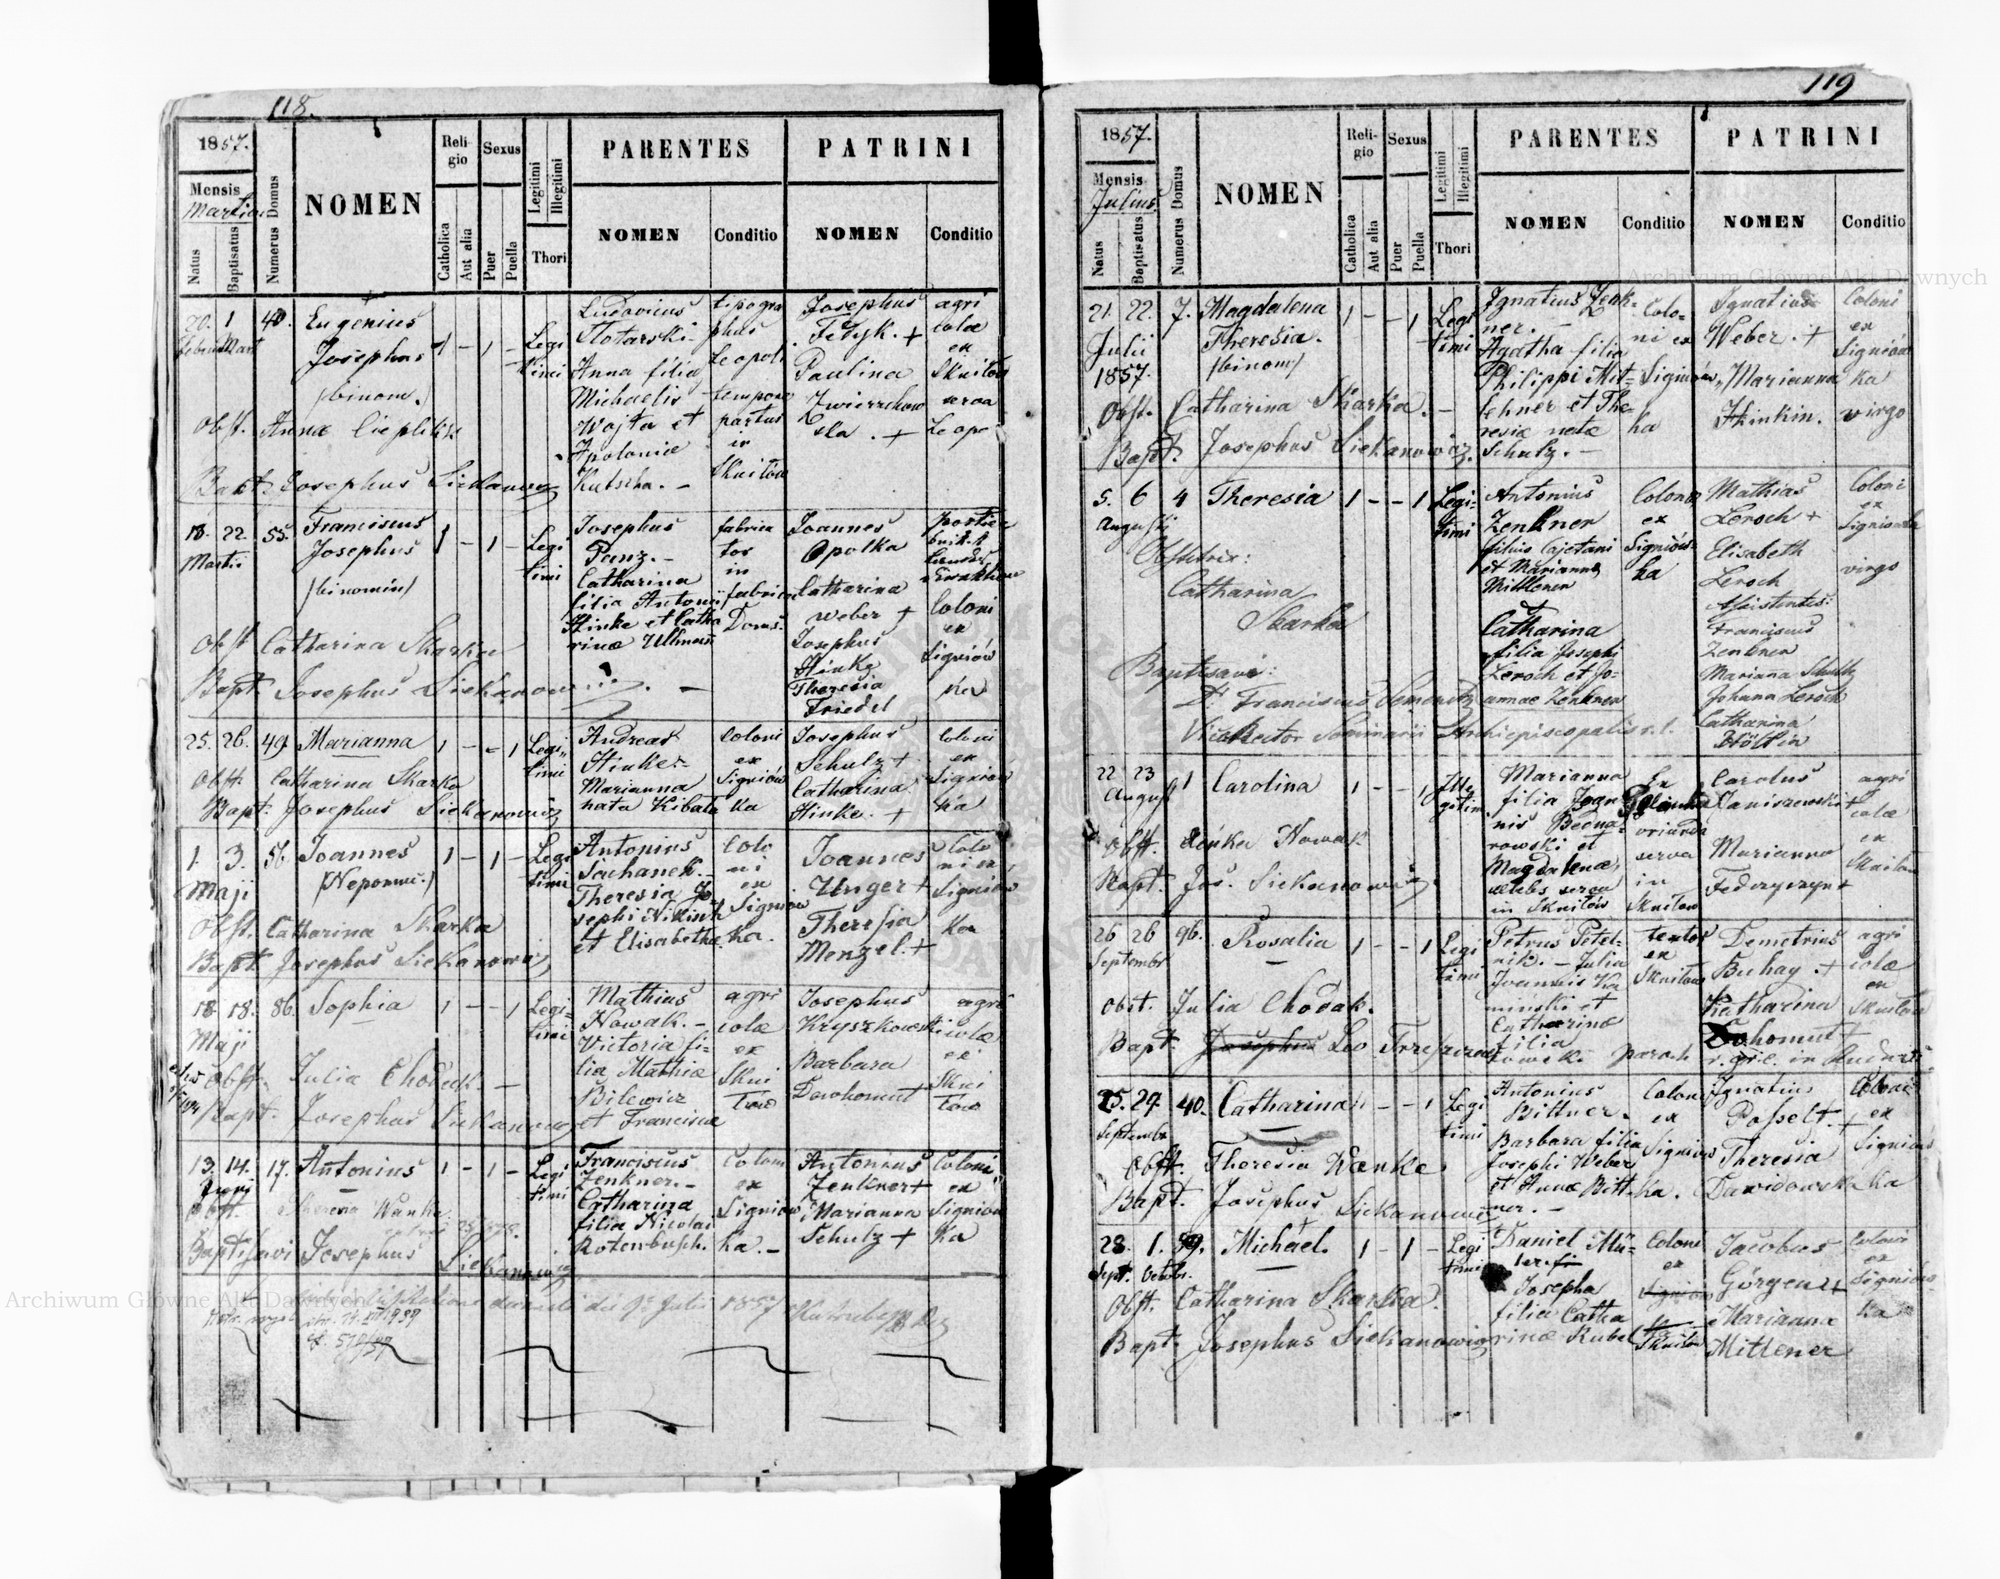 118.
1857.
Mensis
Martius
Natus
Baptisatus
Numerus Domus
NOMEN
Reli-
gio
Catholica
Aut alia
Sexus
Puer
Puella
Legitimi
Illegitimi
Thori
PARENTES
NOMEN
Conditio
PATRINI
NOMEN
Conditio
20. 1 40. Eugenius 1 - 1 - Legi
timi
Josephus
/binom./
Ludovicus
Anna filia
Michaelis
Wojta et
Apoloniæ
Kutscha. -
tipogra
phus
Leopoli
tempore
partus
in
Skniłów
Josephus
Fedyk. +
Paulina
agri
colæ
ex
Skniłów
Obst. Anna
Bapt. Josephus Siekanowicz
18. 22. 55. Franciscus 1 - 1 - Legi
timi
Martii
Josephus
/binomin/
Josephus
Panz. -
Catharina
filia Antonii
Hinke et Catha
rinæ Ullmann
fabrica
tor
in
fabrica
Doms.
Joannes
Opolka
Catharina
Weber +
Josephus
Hinke
Theresia
Friedel
Coloni
ex
Signiów
ka
Obst Catharina Skarka
Bapt. Josephus Siekanowicz
25. 26. 49. Marianna 1 - - 1 Legi-
timi
Andreas
Hinke. -
Marianna
nata Kibala
Coloni
ex
Signiów
ka
Josephus
Schulz +
Catharina
Hinke. +
Coloni
ex
Signiów
ka
Obst. Catharina Skarka
Bapt. Josephus Siekanowicz
1. 3. 56 Joannes 1 - 1 - Legi
timi
Maji
/Nepomuc./
Antonius
Sachanek. -
Theresia Jo
sephi
et Elisabethæ
Colo
ni
ex
Signiów
ka.
Joannes
Unger +
Theresia
Menzel. +
Colo
ni ex
Signiów
ka
Obst. Catharina Skarka
Bapt. Josephus Siekanowicz
18. 18. 86. Sophia 1 - - 1 Legi-
timi
Maji
Mathias
Nowak. -
Victoria fi-
lia Mathiæ
Bilewicz
et Franciscæ
agri
colæ
ex
Skni
łów
Josephus
Kryszkowski
Barbara
Dawhomut
agri
colæ
ex
Skni
łów
Obst. Julia Chodak. -
Bapt. Josephus Siekanowicz
13. 14. 17. Antonius 1 - 1 - Legi
timi
Junij
Franciscus
Zenkner. -
Catharina
filia Nicolai
Rotenbusch.
Coloni
ex
Signiów
ka. -
Antonius
Zenkner +
Marianna
Schulz +
Coloni
ex
Signiów
ka
Obst. Theresia Wanke
Baptisavi Josephus Siekanowicz
119
1857.
Mensis
Julius.
Natus
Baptisatus
Numerus Domus
NOMEN
Reli-
gio
Catholica
Aut alia
Sexus
Puer
Puella
Legitimi
Illegitimi
Thori
PARENTES
NOMEN
Conditio
PATRINI
NOMEN
Conditio
21. 22. 7. Magdalena 1 - - 1 Legi
timi
Julii
1857.
Theresia.
/binom/
Ignatius Zenk-
ner. -
Agatha filia
Philippi Mit-
lehner et The-
resiæ natæ
Schulz. -
Colo-
ni ex
Signiow-
ka
Ignatius
Weber. +
Marianna
Hinkin.
Coloni
ex
Signiow
ka
virgo
Obst. Catharina Skarka. -
Bapt. Josephus Siekanowicz.
5. 6 4 Theresia 1 - - 1 Legi-
timi
Augusti
Antonius
Zenkner
filius Cajetani
et Marianna
Mittlener
Catharina
filia Josephi
Leroch et Jo-
annae Zenkner
Colonus
ex
Signiów-
ka
Mathias
Leroch +
Elisabeth
Leroch
Assistentes:
Franciscus
Zenkner
Marianna Schultz
Johana Leroch
Catharina
Coloni
ex
Signiowka
virgo
Obstetrix:
Catharina
Skarka
Baptisavi:
Dr. Franciscus
ViceRector Seminarii Archiepiscopalis r. l.
22 23 91 Carolina 1 - - 1 Ille
gitimi
August
Marianna
filia Joan
nis Bedna-
rowski et
Magdalenæ,
cælebs serva
in Skniłów
serva
in
Skniłow
Carolus
Kaniszewski +
Marianna
Fedczyszyn +
agri
colæ
ex
Skniłow
Obst. Zeńka Nowak
Bapt. Jos. Siekanowicz.
26 26 96. Rosalia 1 - - 1 Legi
timi
Septembr
Petrus Petel-
nik. - Julia
Joannis Ka
minski et
Catharinæ
filia
textor
ex
Skniłow
Demetrius
Buhay. +
Katharina
Dohomut +
agri
colæ
ex
Skniłów
Obst. Julia Chodak.
Bapt. Josephus Leo
paroch
r. gr. c. in
25. 29. 40. Catharina 1 - - 1 Legi
timi
Septembr
Antonius
Bittner.
Barbara filia
Josephi Weber
et Annæ Bitt-
ner. -
Coloni
ex
Signiow
ka.
Ignatius
Posselt. +
Theresia
Dawidowska
Coloni
ex
Signiów
ka
Obst. Theresia Wanke
Bapt. Josephus Siekanowicz
28. 1. 59. Michael. 1 - 1 - Legi
timi
Sept. Octobr.
Daniel Mü-
ler
Josepha
filia Catha
rinæ Kubel
Coloni
ex
Skniłów
Jacobus
Görgen +
Marianna
Mitlener
Coloni
ex
Signiów
ka
Obst. Catharina Skarka.
Bapt. Josephus Siekanowicz
Archiwum Główne Akt Dawnych
Archiwum Główne Akt Dawnych